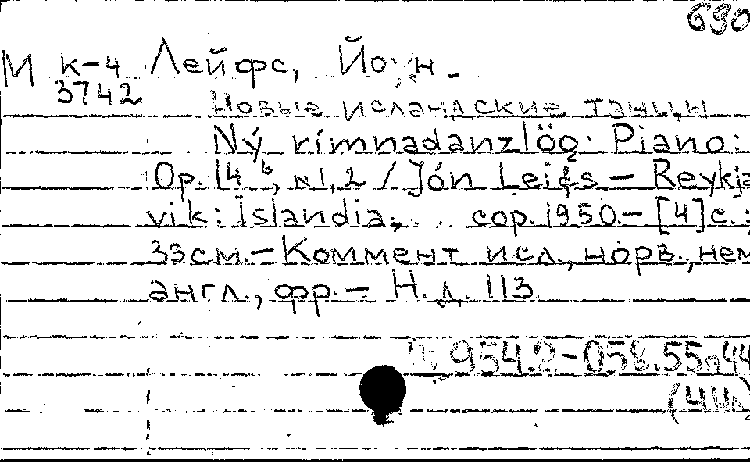 690
М К-4 Лейфс, Йон.
3742
Новые исландские танцы
Ný rímnadanzlög: Piano:
Op. 14 b, N 1, 2 / Jón Leifs – Reykja
vik: Íslandia, cop. 1950. – [4] с.;
33 см. – Коммент исл., норв., нем
англ., фр. – Н. д. 113
954.2-058.55